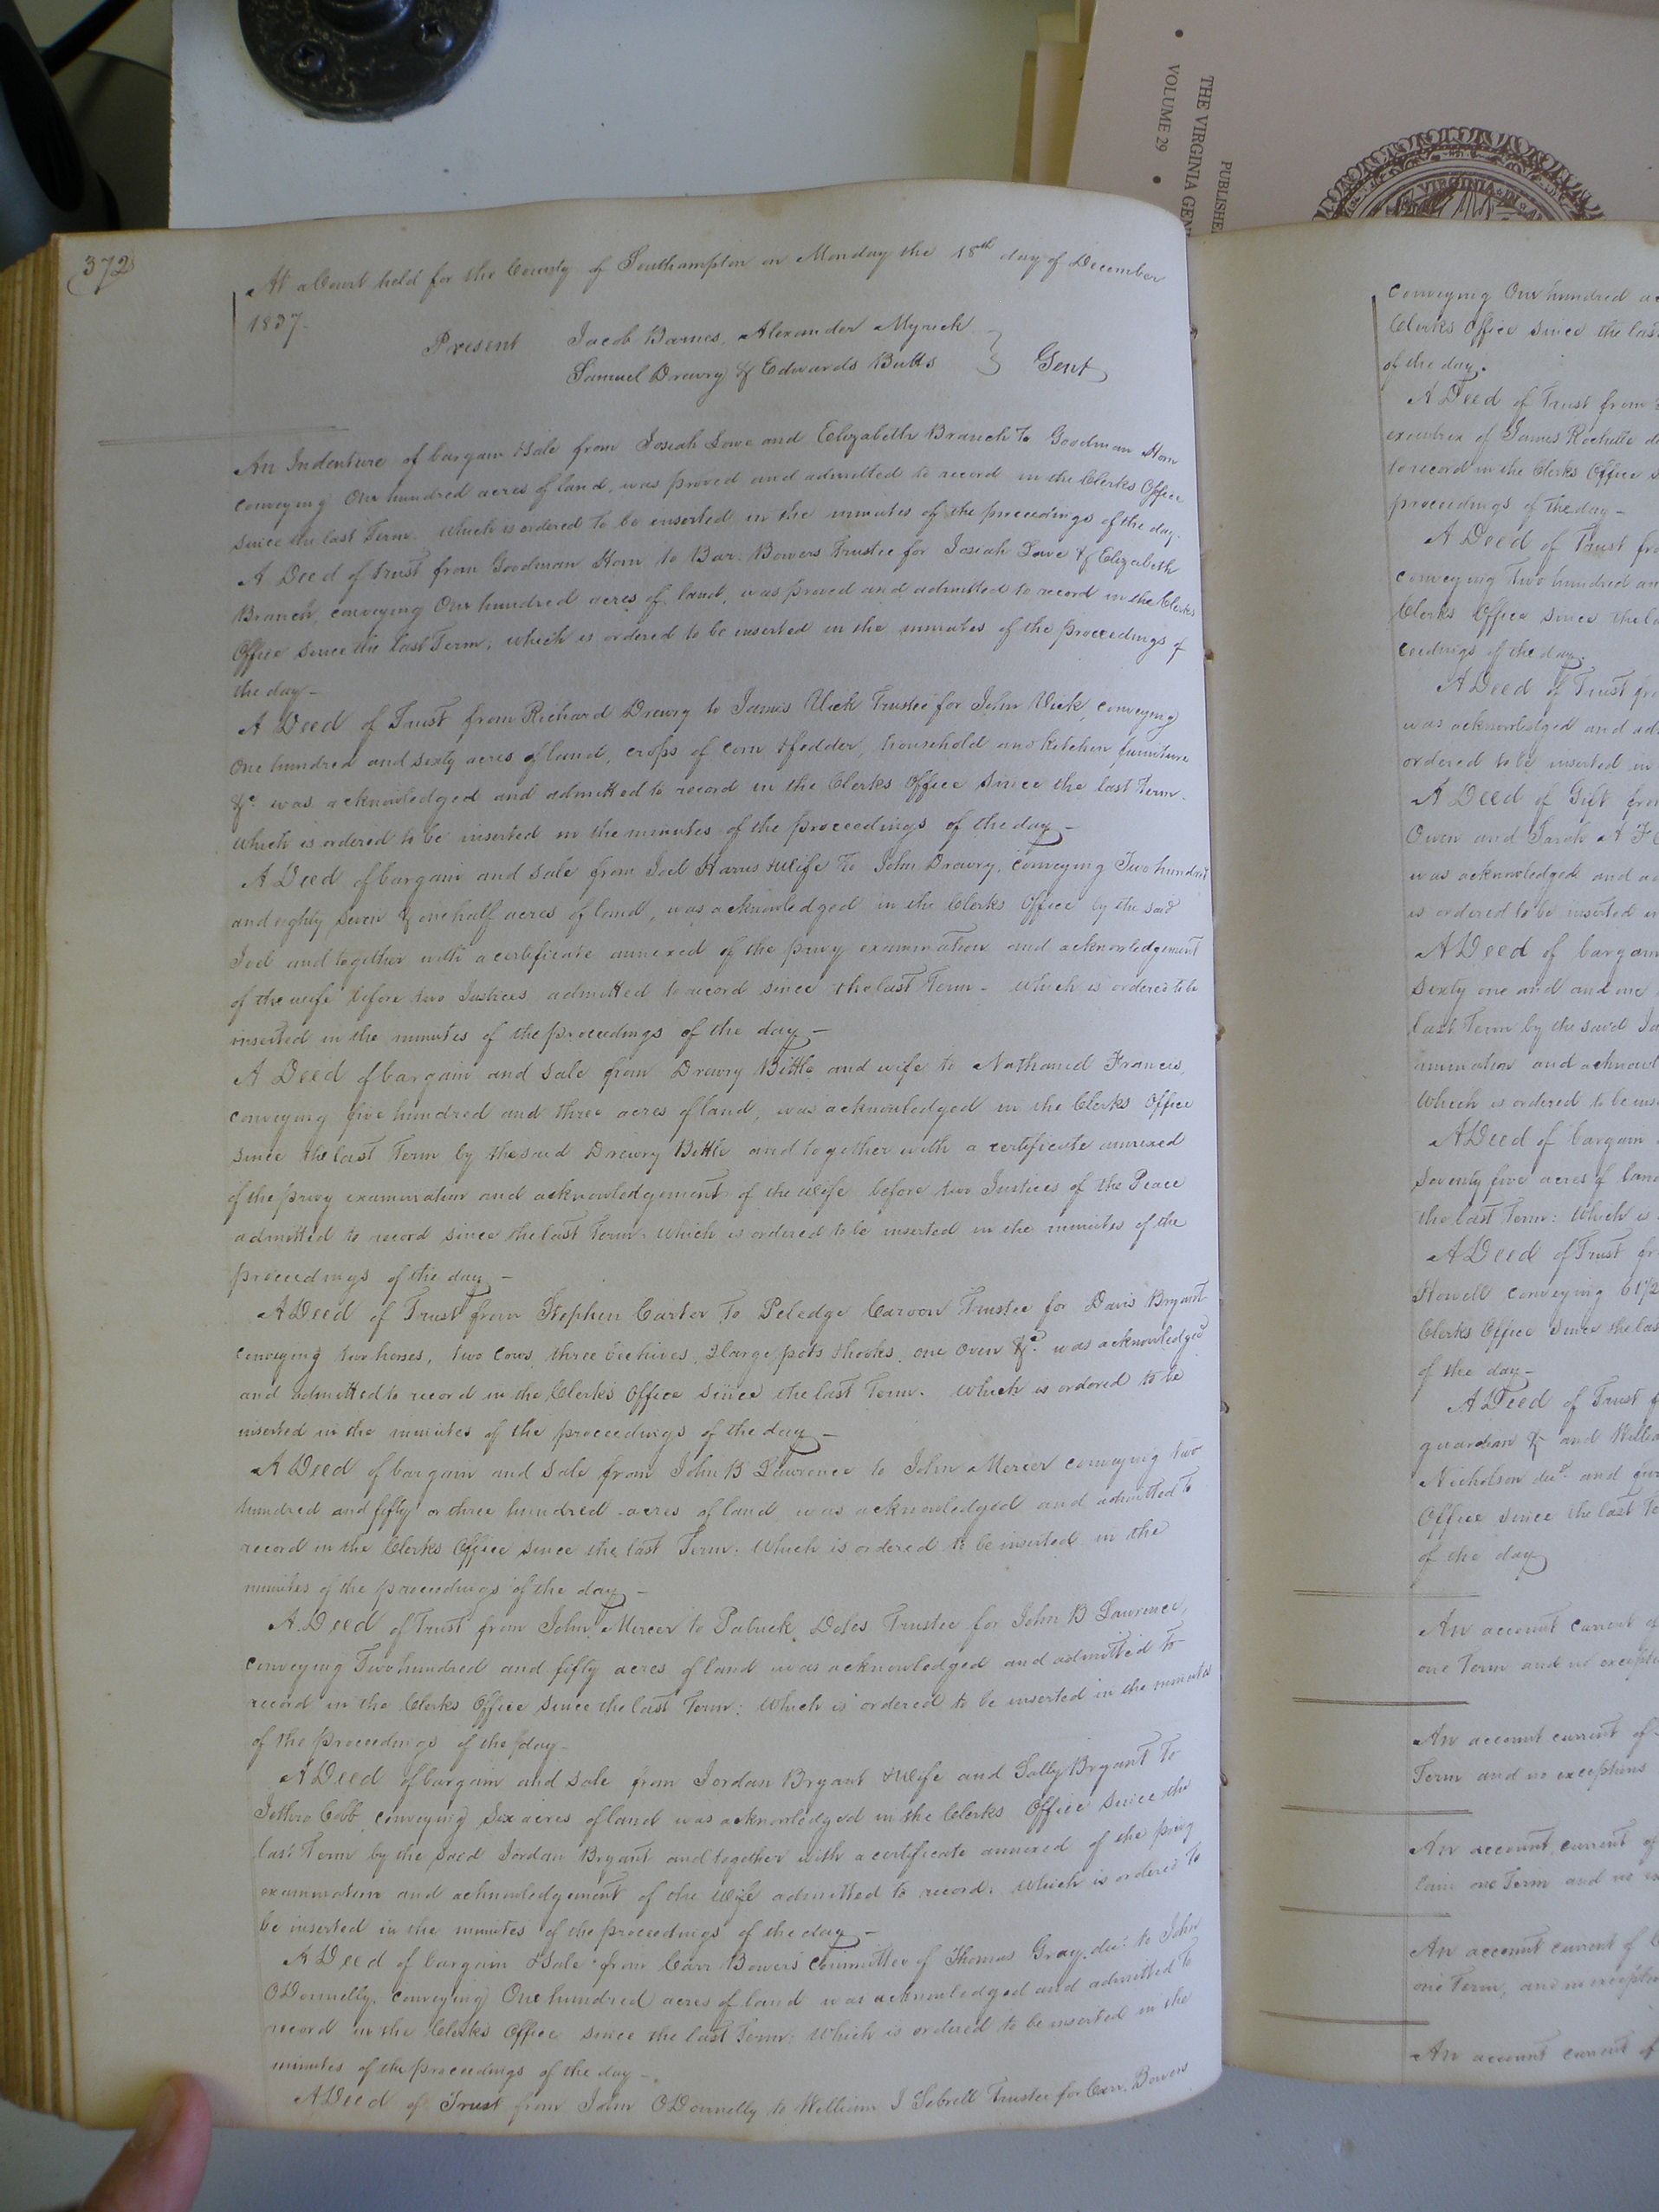 THE VIRGINIA
VOLUME 29
VIRGINIA
372
At a Court held for the County of Southampton on Monday the 18th day of December
1837.
Present Jacob Barnes, Alexander Myrick
Samuel Drewry & Edwards Butts } Gent
An Indenture of bargain & sale from Josiah Lowe and Elizabeth Branch to Goodman Horn
conveying One hundred acres of land, was proved and admitted to record in the Clerks Office
since the last Term. Which is ordered to be inserted in the minutes of the proceedings of the day.
A Deed of trust from Goodman Horn to Bowers Trustee for Josiah Lowe & Elizabeth
Branch, conveying One hundred acres of land, was proved and admitted to record in the Clerks
Office since the last Term, which is ordered to be inserted in the minutes of the proceedings of
the day -
A Deed of Trust from Richard Drewry to James Vick Trustee for John Vick, conveying
One hundred and sixty acres of land, crops of corn & fodder, household and kitchen furniture
&c. was acknowledged and admitted to record in the Clerks Office since the last Term.
which is ordered to be inserted in the minutes of the proceedings of the day -
A Deed of bargain and sale from Joel Harris & Wife to John Drewry, conveying Two hundred
and eighty seven & one half acres of land, was acknowledged in the Clerks Office by the said
Joel and together with a certificate annexed of the privy examination and acknowledgement
of the wife before two Justices admitted to record since the last Term - which is ordered to be
inserted in the minutes of the proceedings of the day -
A Deed of bargain and sale from Drewry Bittle and wife to Nathaniel Francis,
conveying five hundred and three acres of land, was acknowledged in the Clerks Office
since the last Term by the said Drewry Bittle and together with a certificate annexed
of the privy examination and acknowledgement of the wife before two Justices of the Peace
admitted to record since the last Term. Which is ordered to be inserted in the minutes of the
proceedings of the day -
A Deed of Trust from Stephen Carter to Trustee for Davis Bryant
conveying two horses, two cows, three beehives, 2 large pots & hooks, one oven &c. was acknowledged
and admitted to record in the Clerks Office since the last Term. Which is ordered to be
inserted in the minutes of the proceedings of the day -
A Deed of bargain and sale from John B Lawrence to John Mercer conveying two
hundred and fifty or three hundred acres of land was acknowledged and admitted to
record in the Clerks Office since the last Term. Which is ordered to be inserted in the
minutes of the proceedings of the day -
A Deed of Trust from John Mercer to Patrick Doles Trustee for John B Lawrence,
conveying Two hundred and fifty acres of land was acknowledged and admitted to
record in the Clerks Office since the last Term: Which is ordered to be inserted in the minutes
of the proceedings of the day -
A Deed of bargain and sale from Jordan Bryant & Wife and Sally Bryant to
Jethro Cobb, conveying Six acres of land was acknowledged in the Clerks Office since the
last Term by the said Jordan Bryant and together with a certificate annexed of the privy
examination and acknowledgement of the Wife admitted to record. Which is ordered to
be inserted in the minutes of the proceedings of the day -
A Deed of bargain & Sale from Carr Bowers Committee of Thomas Gray dec. to John
O Donnelly, conveying One hundred acres of land was acknowledged and admitted to
record in the Clerks Office since the last Term: Which is ordered to be inserted in the
minutes of the proceedings of the day -
A Deed of Trust from John O Donnelly to William J Sebrell Trustee for Carr Bowers
conveying One hundred
Clerks Office since the last
of the day.
A Deed of Trust from
executrix of James Rochelle
to record in the Clerks Office
proceedings of the day -
A Deed of Trust
conveying Two hundred
Clerks Office since the
ceedings of the day.
A Deed of Trust
was acknowledged and
ordered to be inserted in
A Deed of Gift from
Owen and Sarah A
was acknowledged and
is ordered to be inserted
A Deed of bargain
Sixty one and and one
last Term by the said
amination and
Which is ordered to be
A Deed of bargain
Seventy five acres of land
the last Term: Which is
A Deed of Trust
Howell conveying 61 1/2
Clerks Office since the last
of the day -
A Deed of Trust
guardian & and
Nicholson dec. and
Office since the last
of the day
An account current of
one Term and no
An account current of
Term and no exceptions
An account current of
lain one Term and no
An account current of
one Term, and no
An account current of